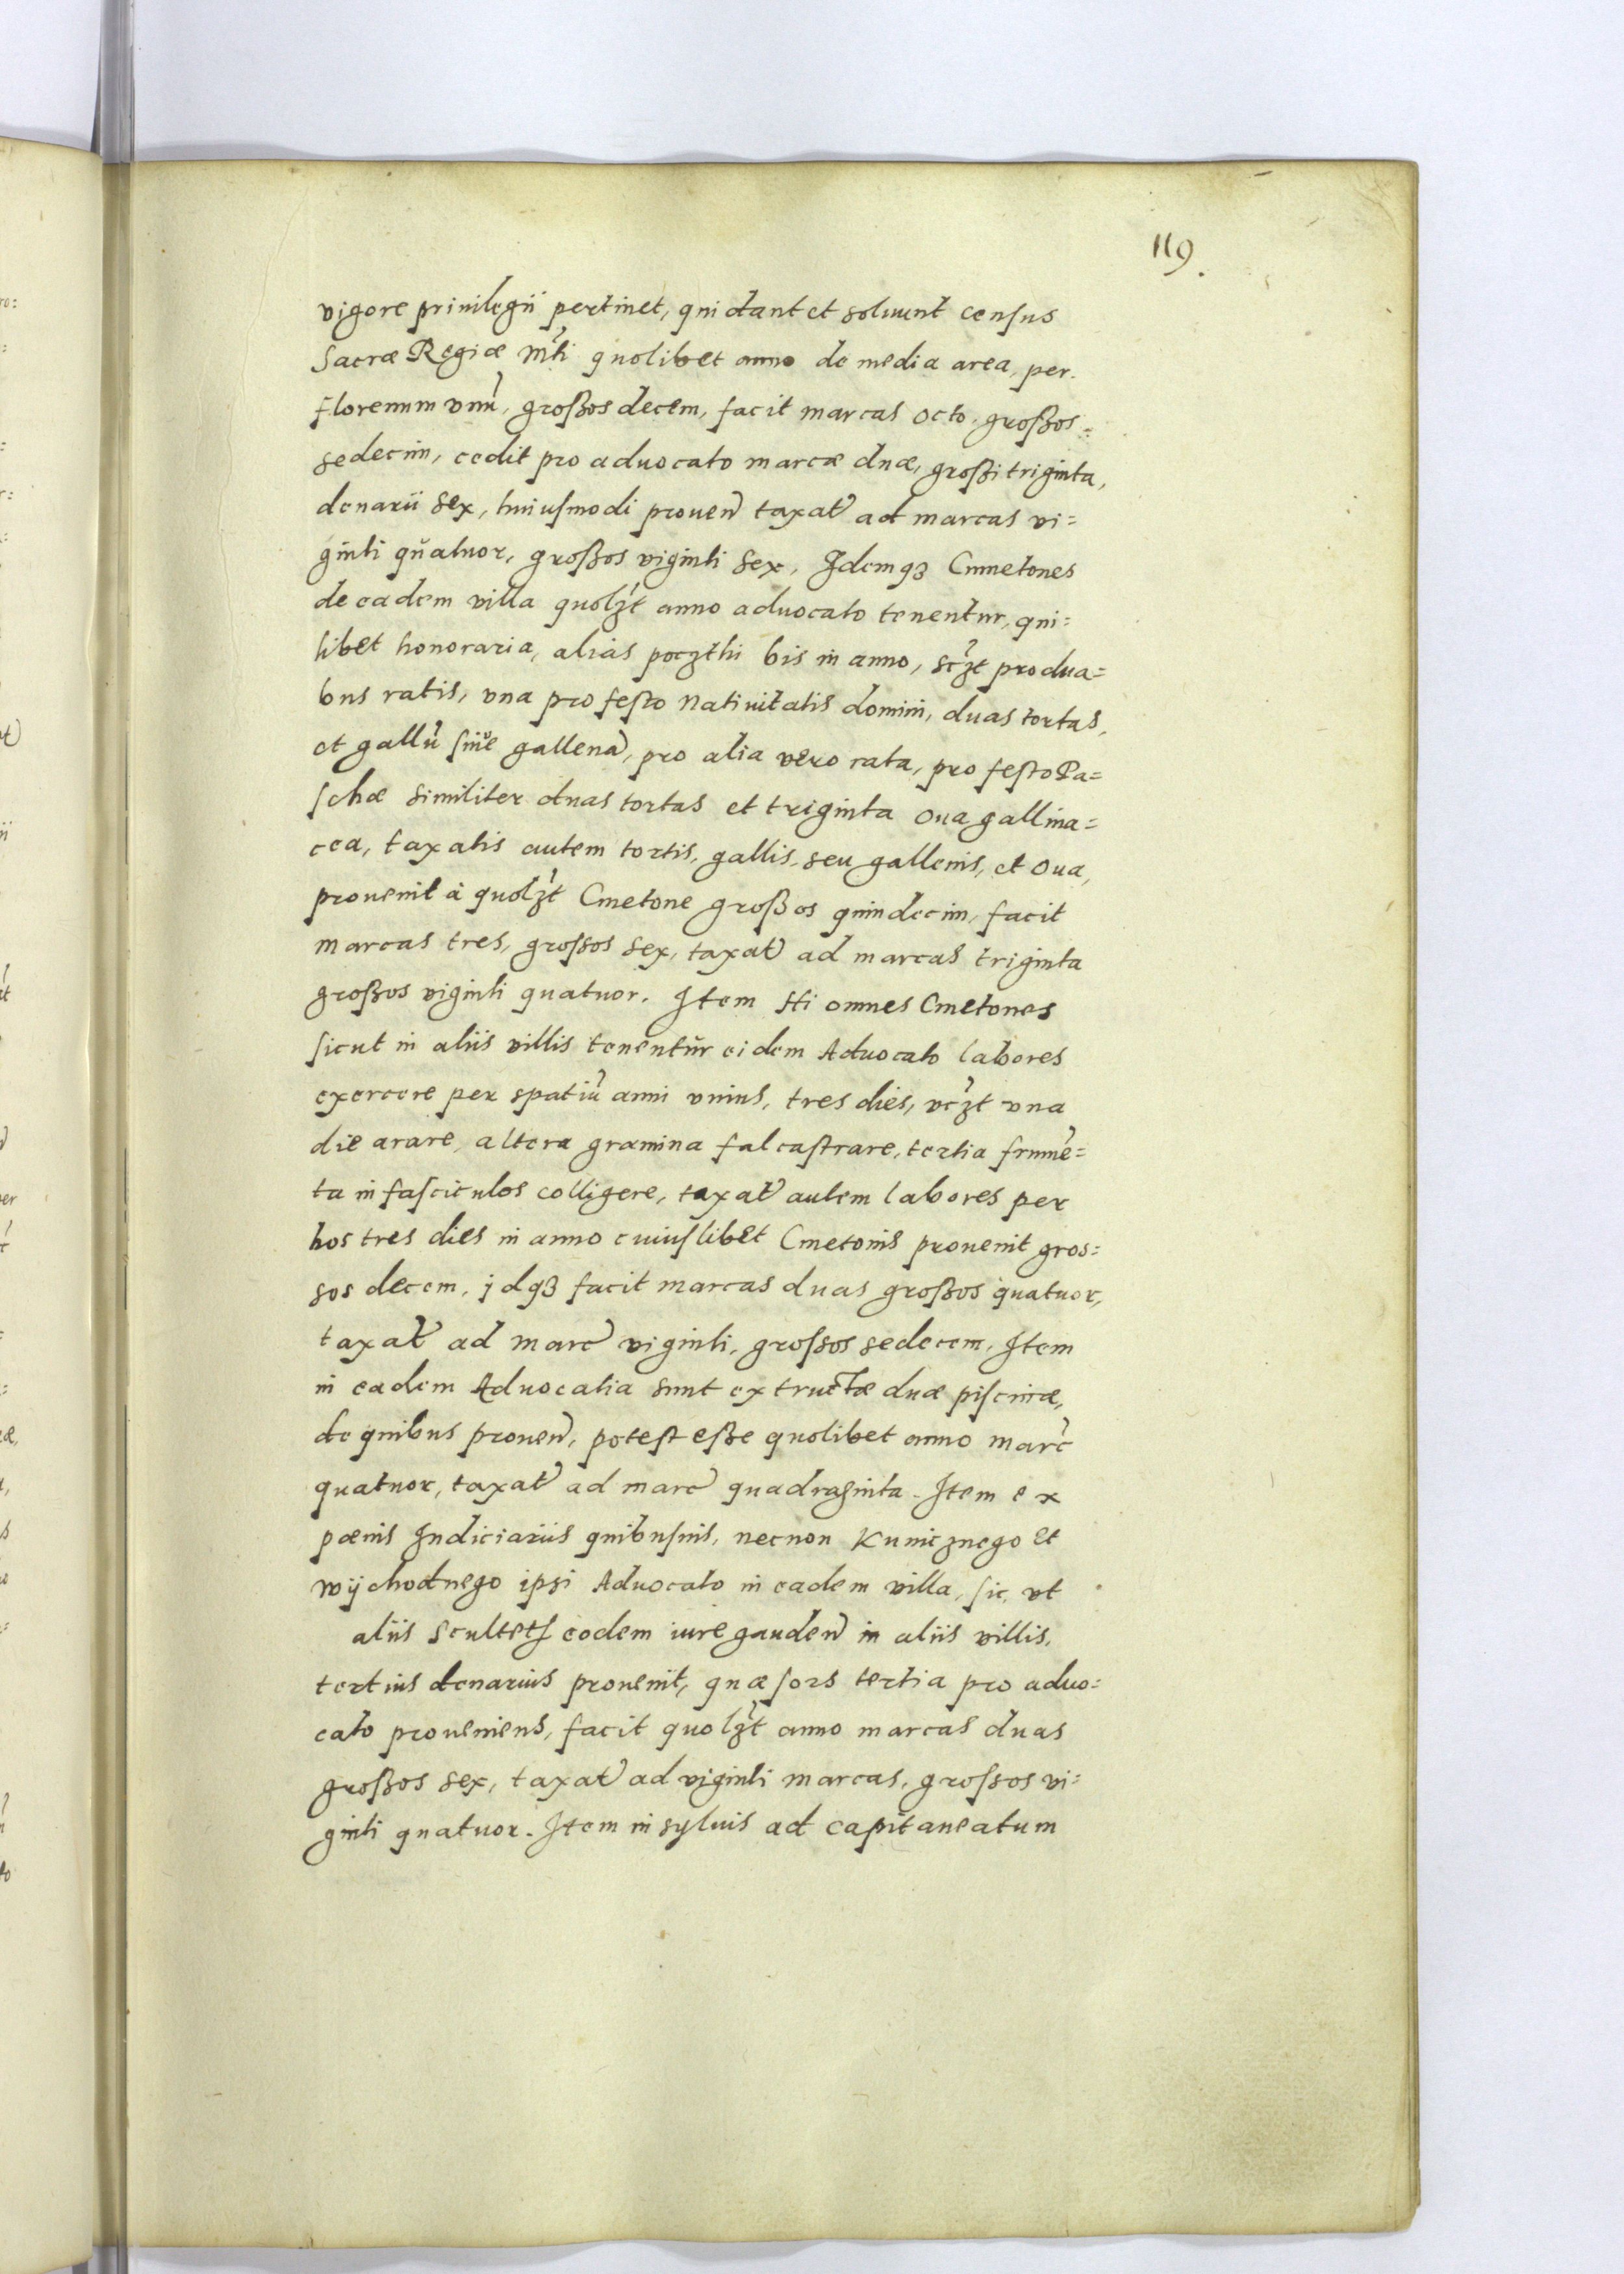 119.
vigore priuilegii pertinet, qui dant et soluunt census
Sacræ Regiæ Mt̃i quolibet anno de media area, per
florenum vnũ, großos decem, facit marcas octo, großos=
sedecim, cedit pro aduocato marcæ duæ, großi triginta,
denarii sex, huiusmodi prouen̄ taxat̃ ad marcas vi=
ginti quatuor, großos viginti sex, Idemqȝ Cmmetones
de eadem villa quolȝt anno aduocato tenentur, qui=
libet honoraria, alias poczthi bis in anno, scȝt pro dua=
bus ratis, vna pro festo Natiuitatis domini, duas tortas,
et gallũ siũe gallenã, pro alia vero rata, pro festo Pa=
schæ similiter duas tortas et triginta oua gallina=
cea, taxatis autem tortis, gallis, seu gallenis, et oua,
prouenit à quolȝt Cmetone großos quindecim, facit
marcas tres, grossos sex, taxat̃ ad marcas triginta
großos viginti quatuor. Item Hi omnes Cmetones
sicut in aliis villis tenentur eidem Aduocato labores
exercere per spatiũ anni vnius, tres dies, vcȝt vna
die arare, altera gramina falcastrare, tertia frumẽ=
ta in fasciculos colligere, taxat̃ autem labores per
hos tres dies in anno cuiuslibet Cmetonis prouenit gros=
sos decem, jdqȝ facit marcas duas großos quatuor,
taxat̃ ad marc̃ viginti, grossos sedecem, Item
in eadem Aduocatia sunt extructæ duæ piscinæ,
de quibus prouen̄, potest eße quolibet anno marc̃
quatuor, taxat̃ ad marc̃ quadraginta. Item ex
pœnis Iudiciariis quibusuis, necnon Kunicznego et
wÿchodnego ipsi Aduocato in eadem villa, sic, vt
aliis scultetis eodem iure gauden̄ in aliis villis,
tertius denarius prouenit, quæ sors tertia pro aduo=
cato proueniens, facit quolȝt anno marcas duas
großos sex, taxat̃ ad viginti marcas, grossos vi=
ginti quatuor. Item in syluis ad capitaneatum